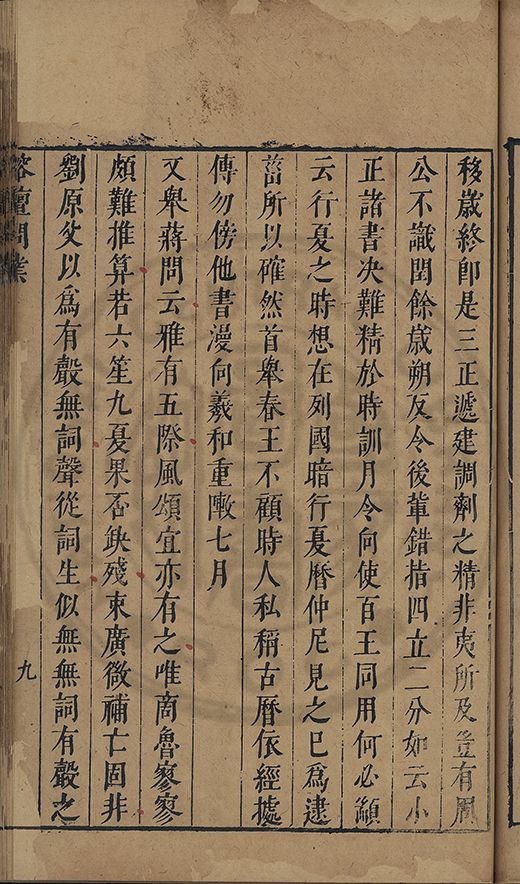 移歲終卽是三正遞建調劑之精非夷所及豈有周
公不識閏餘歲朔反令後軰錯指四立二分如云小
正諸書决難精於時訓月令向使百王同用何必顓
云行夏之時想在列國暗行夏曆仲尼見之已爲逮
菑所以確然首舉春王不顧時人私稱古曆依經據
傳勿傍他書漫向羲和重歎七月
又舉蔣問云雅有五際風頌宜亦有之唯商魯寥寥
頗難推算若六笙九夏果否缺殘束廣微補亡固非
劉原父以爲有聲無詞聲從詞生似無無詞有聲之
榕壇問業
九